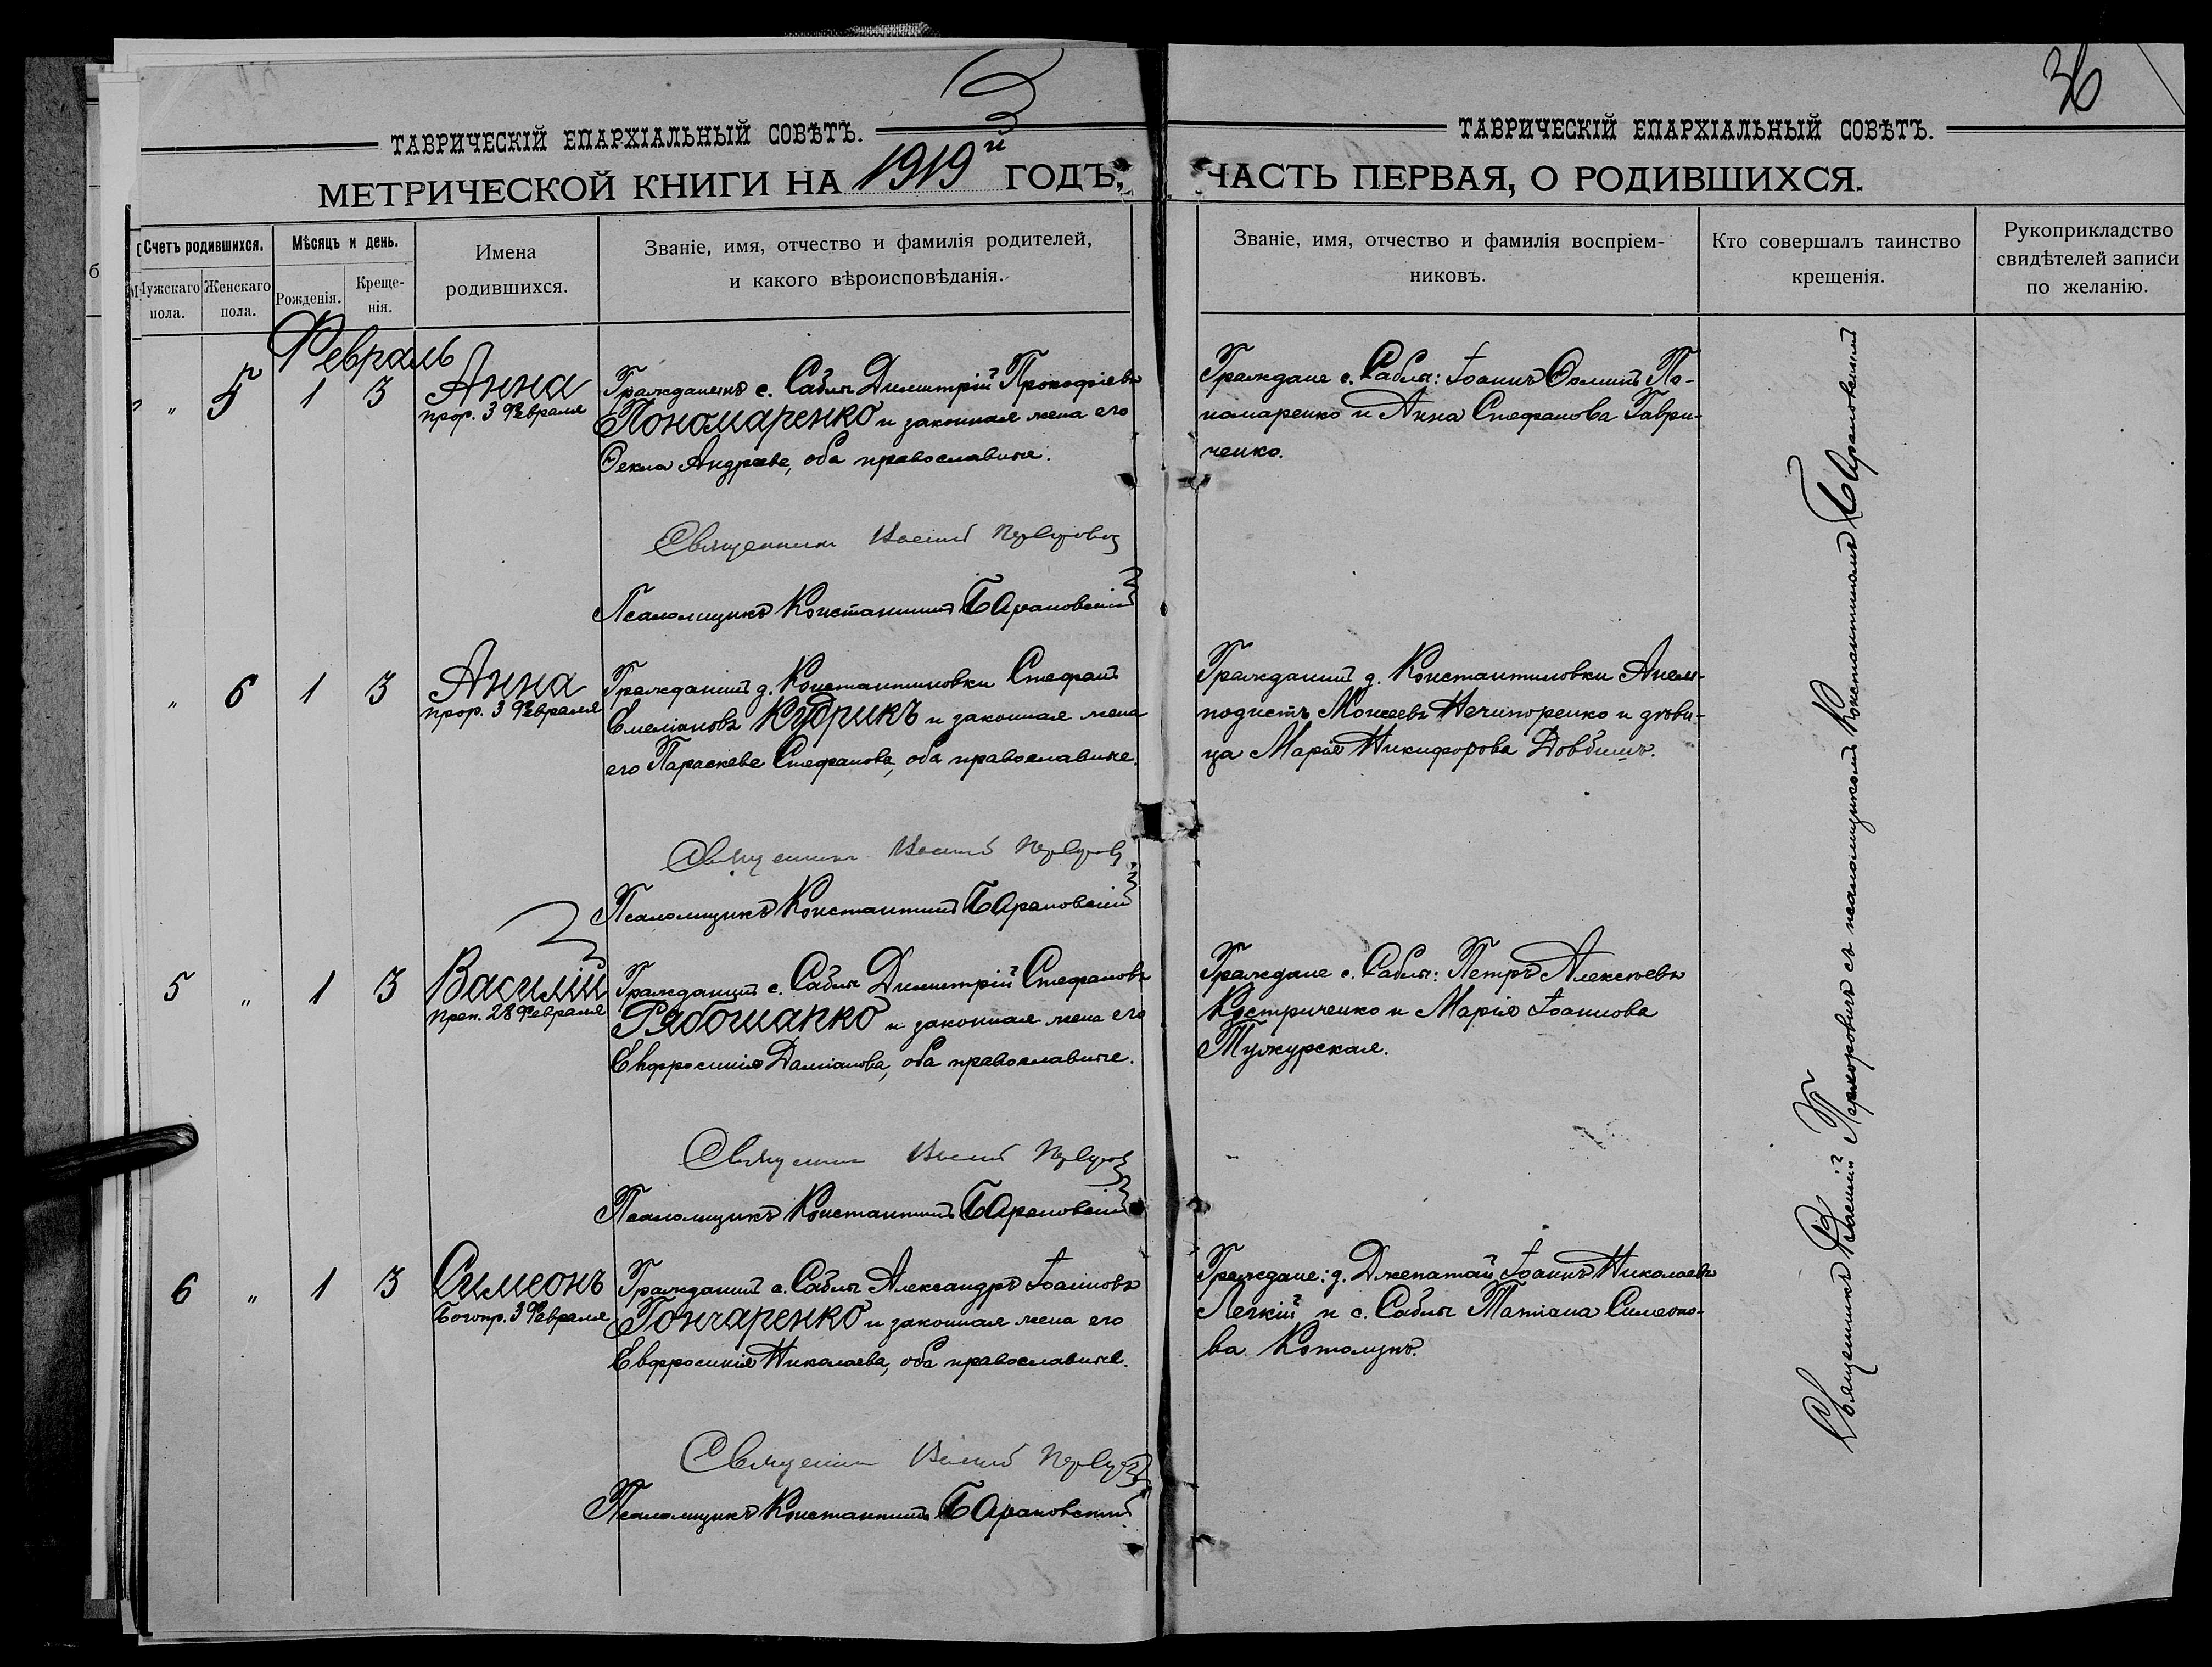 36
ТАВРИЧЕСКІЙ ЕПАРХІАЛЬНЫЙ СОВѢТЪ.
МЕТРИЧЕСКОЙ КНИГИ НА 1919й ГОДЪ,
Счетъ родившихся.
Мужскаго пола.
Женскаго пола.
Мѣсяцъ и день.
Рожденія.
Креще-
нія.
Имена
родившихся.
Званіе, имя, отчество и фамилія родителей,
и какого вѣроисповѣданія.
ТАВРИЧЕСКІЙ ЕПАРХІАЛЬНЫЙ СОВѢТЪ.
ЧАСТЬ ПЕРВАЯ, О РОДИВШИХСЯ.
Званіе, имя, отчество и фамилія воспріем-
никовъ.
Кто совершалъ таинство
крещенія.
Рукоприкладство
свидѣтелей записи
по желанію.
Февраль
" 5 1 3 Анна
прор. 3 Февраля
Гражданинъ с. Саблы Димитрій Прокофіевъ
Пономаренко и законная жена его
Ѳекла Андреева, оба православные.
Священникъ Василій
Псаломщикъ Константинъ Барановскій
Граждане с. Саблы: Іоаннъ Ѳоминъ По-
номаренко и Анна Стефанова Гаври-
ченко.
" 6 1 3 Анна
прор. 3 Февраля
Гражданинъ д. Константиновки Стефанъ
Емеліановъ Кудрикъ и законная жена
его Параскева Стефанова, оба православные.
Священникъ Василій
Псаломщикъ Константинъ Барановскій
Гражданинъ д. Константиновки Анем-
подистъ Моисеевъ Нечипоренко и дѣви-
ца Марія Никифорова Довбишъ.
5 " 1 3 Василій
преп. 28 Февраля
Гражданинъ с. Саблы Димитрій Стефановъ
Рябошапко и законная жена его
Евфросинія Даміанова, оба православные.
Священникъ Василій
Псаломщикъ Константинъ Барановскій
Граждане с. Саблы: Петръ Алексѣевъ
Костриченко и Марія Іоаннова
Тужурская.
6 " 1 3 Симеонъ
Богопр. 3 Февраля
Гражданинъ с. Саблы Александръ Іоанновъ
Гончаренко и законная жена его
Евфросинія Николаева, оба православные.
Священникъ Василій
Псаломщикъ Константинъ Барановскій
Граждане: д. Дженатай Іоаннъ Николаевъ
Легкій и с. Саблы Татіана Симеоно-
ва
Священникъ Василій съ псаломщикомъ Константиномъ Барановскимъ